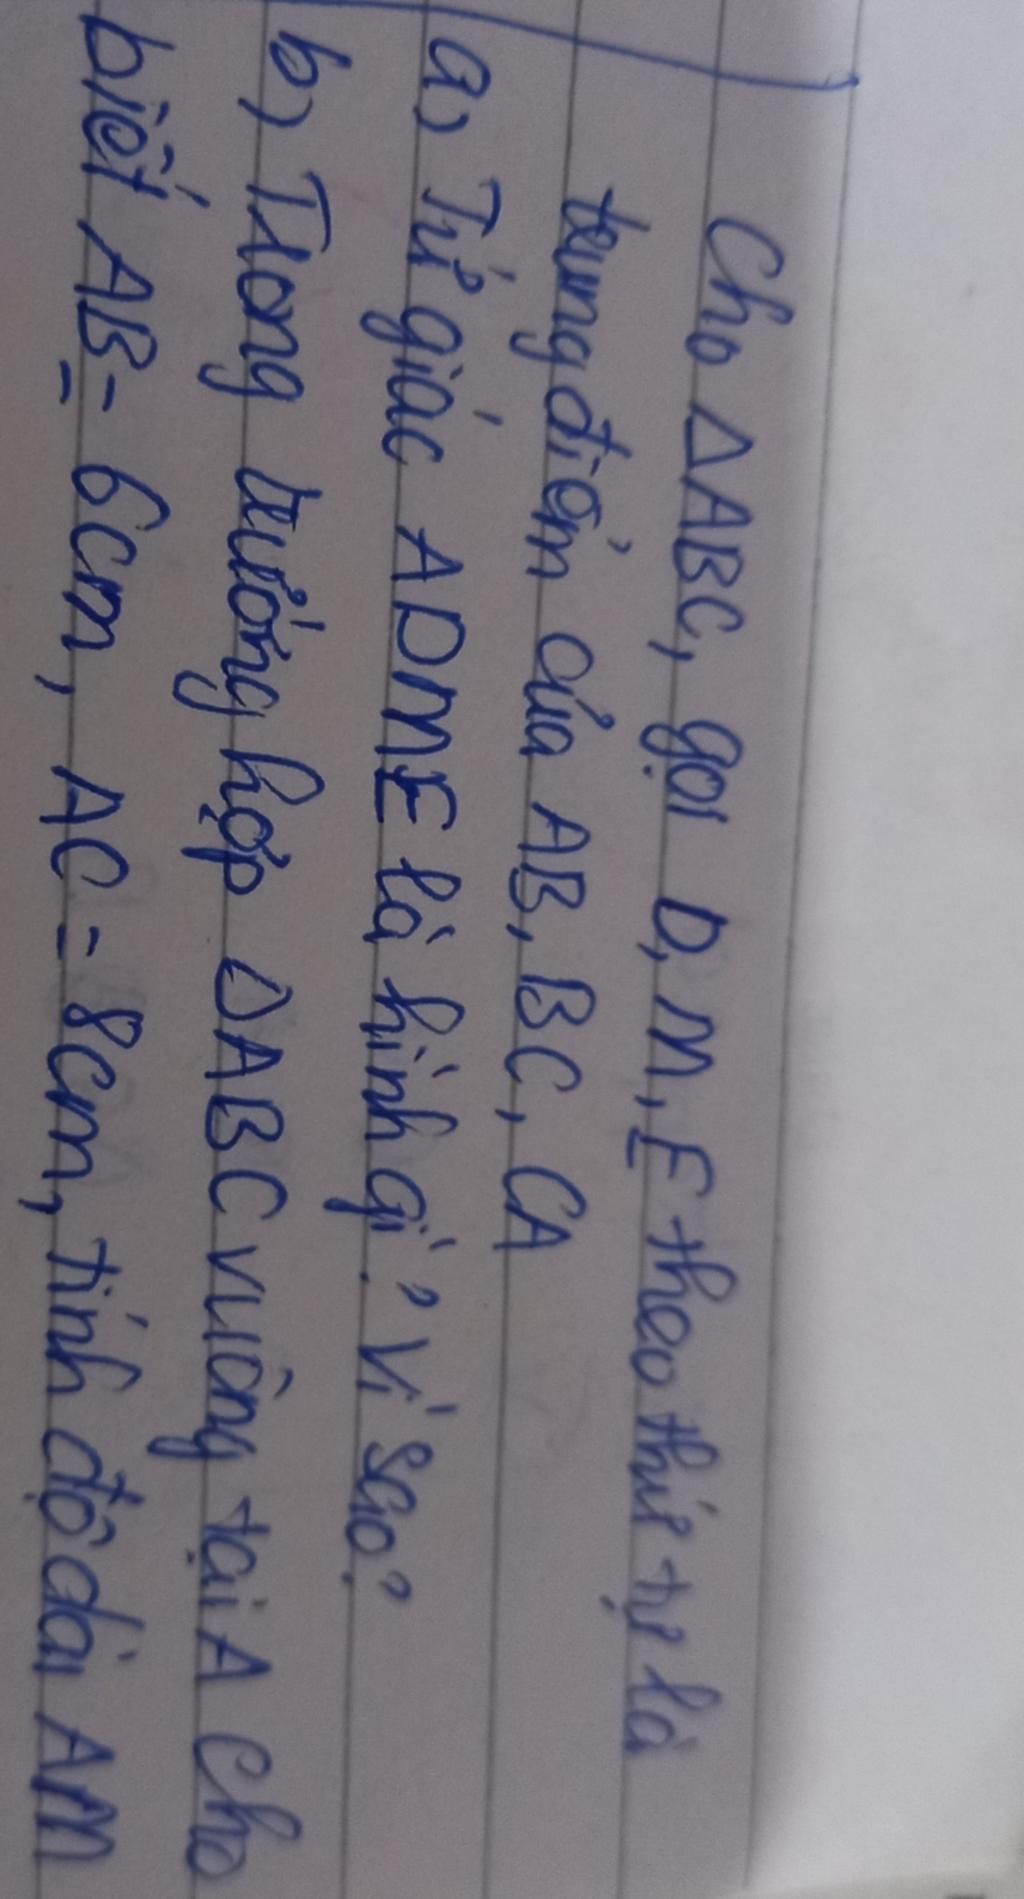 Cho △ABC, gọi D, M, E theo thứ tự là
trung điểm của AB, BC, CA
a) Tứ giác ADME là hình gì? Vì sao?
b) Trong trường hợp △ABC vuông tại A cho
biết AB = 6cm, AC = 8cm, tính độ dài AM